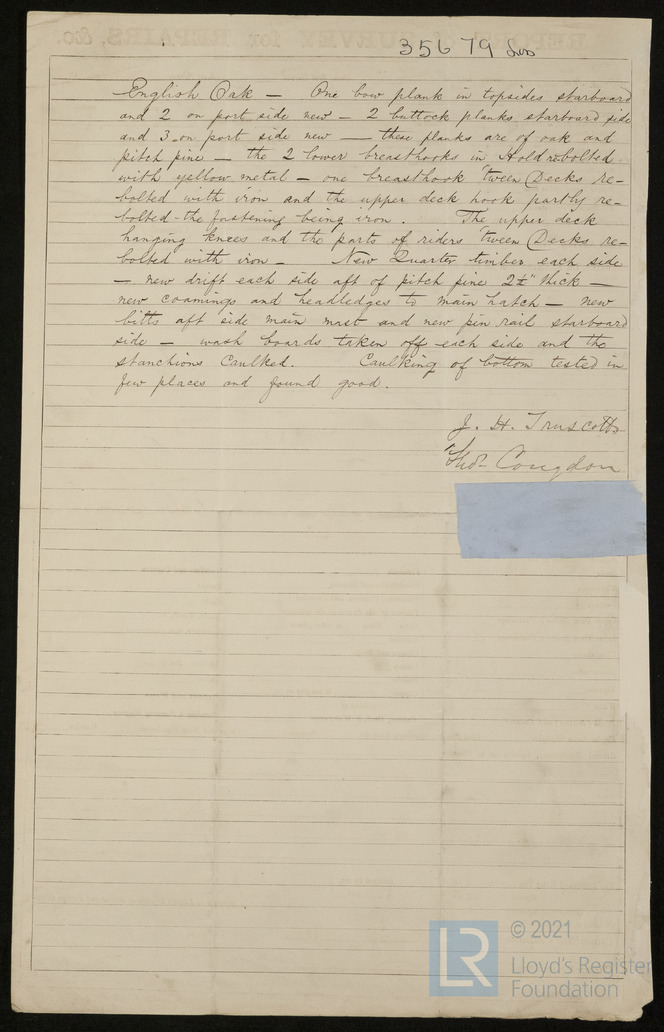 35679 Lon
English Oak — One bow plank in topsides starboard
and 2 on port side new — 2 buttock planks starboard side
and 3 on port side new — these planks are of oak and
pitch pine — the 2 lower breasthooks in Hold rebolted
with yellow metal — one breasthook 'tween Decks re-
bolted with iron and the upper deck hook partly re-
bolted - the fastening being iron. The upper deck
hanging knees and the parts of riders 'tween Decks re-
bolted with iron — New Quarter timber each side
— new drift each side aft of pitch pine 2½" thick —
new coamings and headledges to main hatch — new
bitts aft side main mast and new pin rail starboard
side — wash boards taken off each side and the
stanchions caulked. Caulking of bottom tested in
few places and found good.
J. H. Truscott
Thos. Congdon
LR
© 2021
Lloyd's Register
Foundation